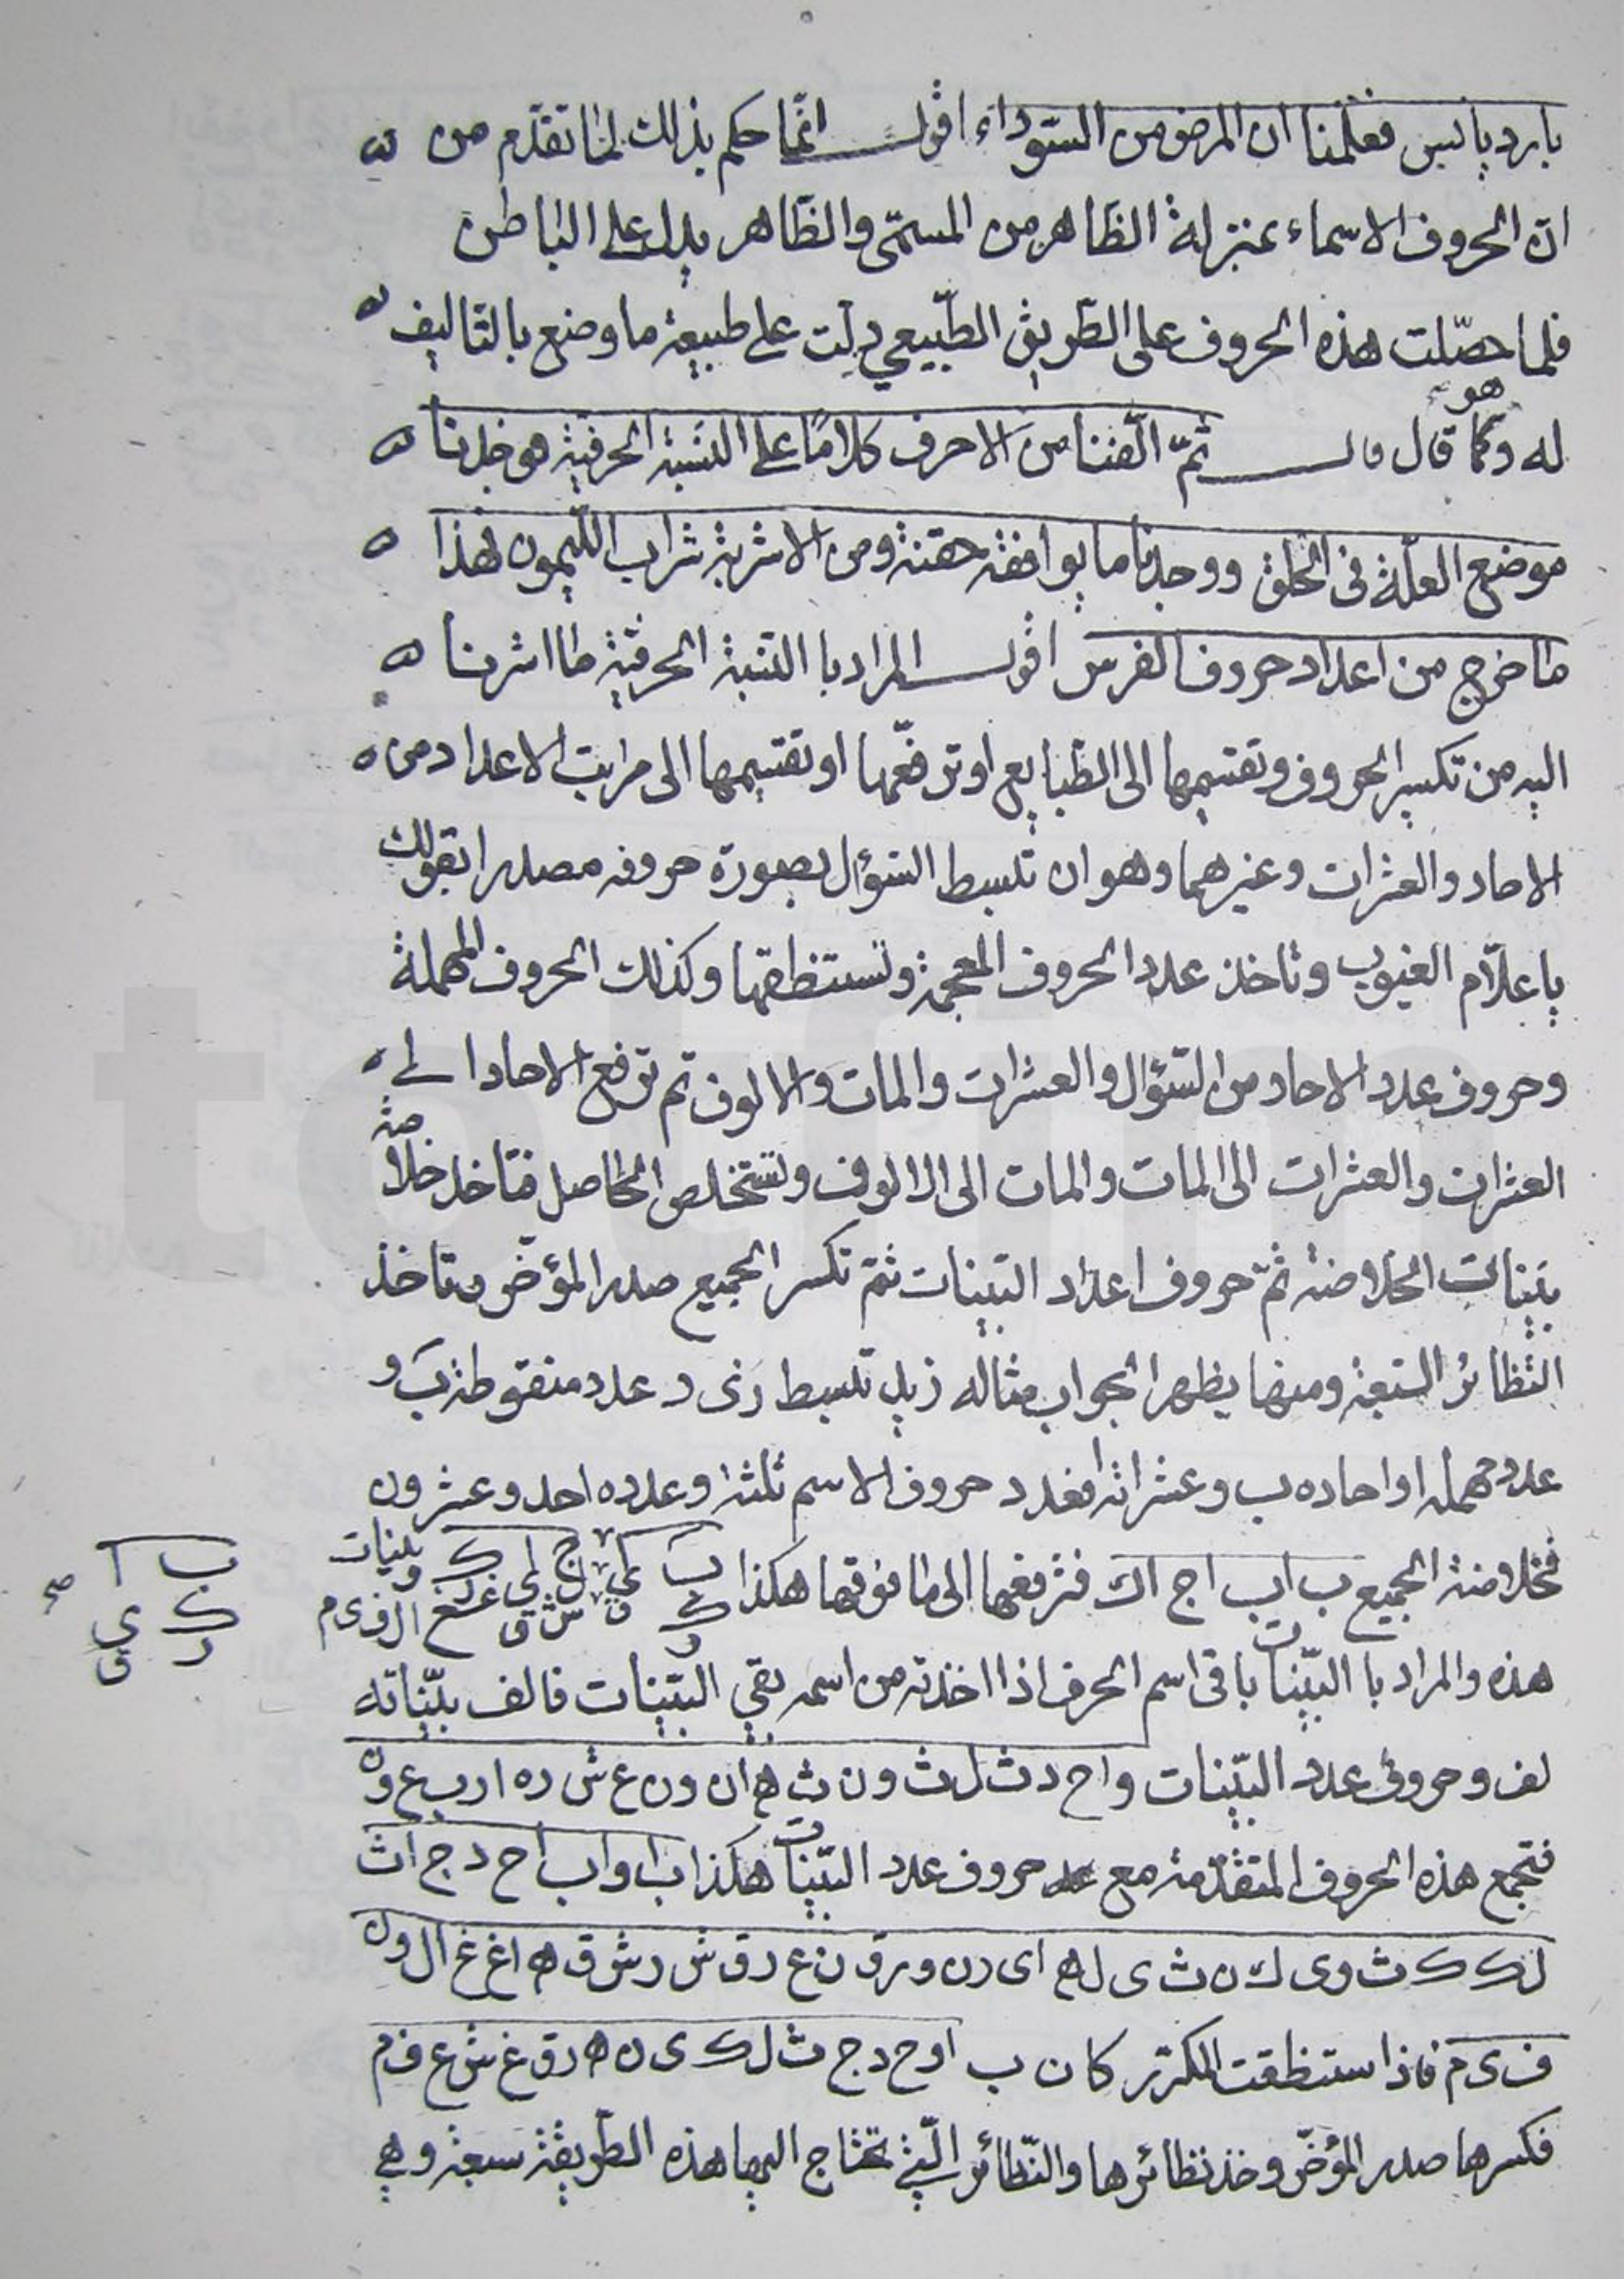 بارد يابس فعلمنا ان المرض من السّوداء اقول انّما حكم بذلك لما تقدّم من
انّ الحروف الاسماء بمنزلة الظاهر من المسمّى والظاهر يدل على الباطن
فلما حصّلت هذه الحروف على الطّريق الطّبيعي دلّت على طبيعة ما وضع بالتاليف
هو
له وكما قال قال ثمّ الّفنا من الاحرف كلامًا على النسبة الحرفية هو خلدنا
موضع العلّة فى الحلق ووجدنا ما يوافقه حقنة ومن الاشربة شراب اللّيمون فهذا
ما خرج من اعداد حروف الفرس اقول المراد با النسبة الحرفية ما اشرنا
اليه من تكسير الحروف وتقسيمها الى الطبايع او ترفعها او تقسيمها الى مراتب الاعداد من
الاحاد والعشرات وغيرهما وهو ان تبسط السّؤال بصورة حروفه مصدرا بقولك
يا علّام الغيوب وتاخذ عدد الحروف المعجمة وتستنطقها وكذلك الحروف المهملة
وحروف عدد الاحاد من السّؤال والعشرات والمات والالوف ثم ترفع الاحاد الى
العشرات والعشرات الى المات والمات الى الالوف وتستخلص الحاصل فتاخذ خلاصة
بيّنات الخلاصة ثمّ حروف اعداد البيّنات ثمّ تكسر الجميع صدر المؤخّر وتاخذ
النظائر السّبعة ومنها يظهر الجواب مثاله زيد تبسط زى د عدد منقوطه ب و
عدد مهمله ا واحاده ب وعشراته ا فعدد حروف الاسم ثلثة وعدده احد وعشرون
فخلاصة الجميع ب ا ب ا ج ا ك فترفعها الى ما فوقها هكذا
وبينات
ب ا
ك ى
ر ق
صح
هذه والمراد با البيّنات باقى اسم الحرف اذا اخذته من اسمه بقي البيّنات فالف بيّناته
لف وحروف عدد البيّنات و ا ح د ث ل ث و ن ث م ا ن و ن ع ش ر ه ا ر ب ع و ن
فتجمع هذه الحروف المتقدّمة مع حروف عدد البيّنات هكذا ب ا و ا ب ا ح د ج ا ث
ل ك ك ث و ى ك ن ث ى ل ه ا ى ر ن و ر ق ن ع ر ق ش ر ش ق ه ا غ غ ا ل و ن
ف ى م فاذا ستنطقت المكرّر كان ب ا و ح د ج ث ل ك ى ن ه ر ق غ ش ع ف م
فكسرها صدر المؤخّر وخذ نظائرها والنّظائر الّتي تحتاج اليها هذه الطّريقة سبعة وهي